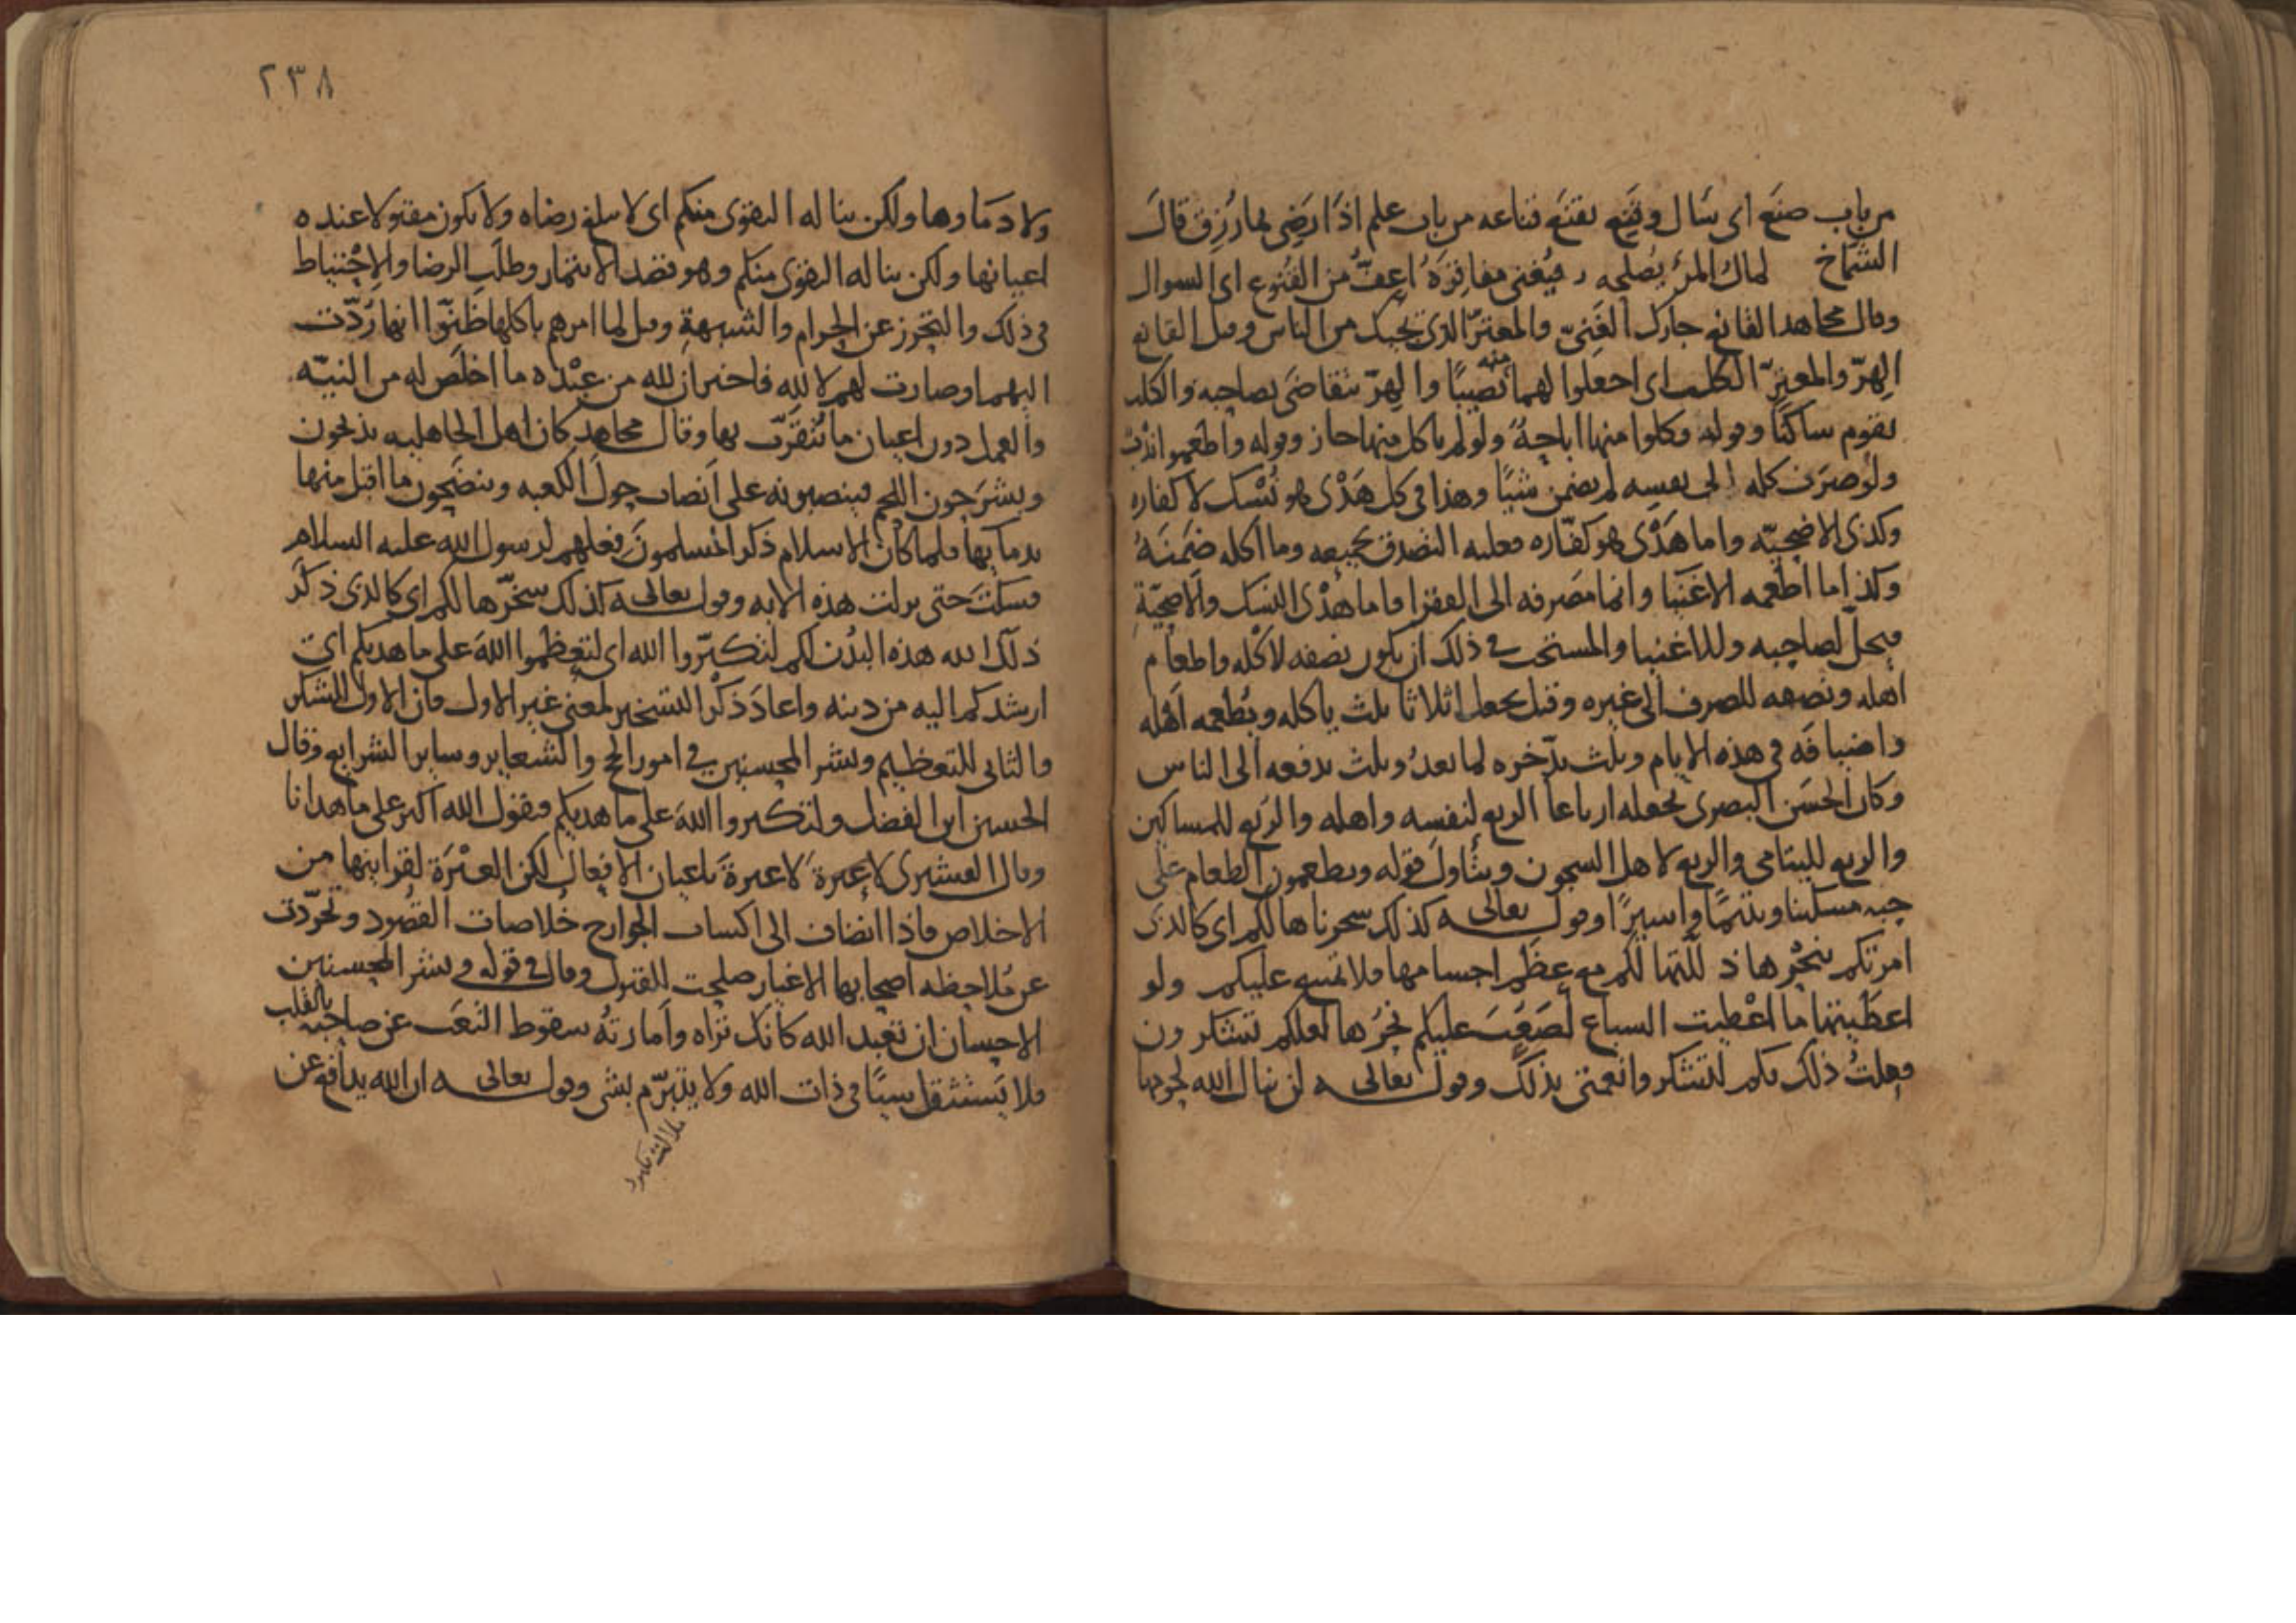 من باب صنع اى سَال وقَنِع يقنَع قناعه من باب علم اذَا رَضِى بما رُزِق قالَ
الشمَّاخ لمالُ المرْءِ يُصلحه فيُغنى مفاقِرَهُ اعفُّ من القُنوع اى السوال
وقال مجاهد القانع جارك الغَنِىّ والمعترّ الذى يجيك من الناس وقيل القانع
الهِرّ والمعترّ الكلب اى اجعلوا لهما منه نصيبًا والهِرّ يتقاضَى بصاحبه والكلب
يقوم ساكتًا وقوله وكلوا منها اباحةٌ ولو لم ياكل منها جاز وقوله واطعموا ندْبٌ
ولو صَرَف كله الى نفسِه لم يضمن شيًا وهذا فى كل هَدْى هو نُسْك لا كفاره
وكذى الاضحيّه واما هَدْى هو كفّاره فعليه التصدق بجميعه وما اكله ضَمنَهُ
وكذا ما اطعمه الاغنيا وانما مَصرفه الى الفقرا فاما هَدْى النسك والاضحِيّةِ
فيحلّ لصاحبه وللاغنيا والمستحب فى ذلك ان يكون نصفه لاكله واطعام
اهله ونصفه للصرف الى غيره وقيل يجعل اثلاثا ثلث ياكله ويُطعمه اهله
واضيافَه فى هذه الايام وثلث يدّخره لما بعدُ وثلث يدفعه الى الناس
وكان الحسَن البصرى يجعله ارباعا الربع لنفسه واهله والربع للمساكين
والربع لليتامى والربع لاهل السجون ويتأول قوله ويطعمون الطعام على
حبه مسكينا ويتيمًا واسيرًا وقوله تعالى كذلك سخرناها لكم اى كالذى
امرتكم بنحْرها ذللتها لكم مع عِظَم اجسامها فلا تمتنع عليكم ولو
اعطَيتها ما اعْطيت السباع لصَعُبَ عليكم نحرُها لعلكم تشكرون
فعلتُ ذلك بكم لتشكروا نعمتى بذلك وقوله تعالى لن ينال الله لحومها
٢٣٨
ولا دمَاوها ولكن يناله التقوى منكم اى لا يبلغ رضاه ولا يكون مقبولا عنده
اعيانها ولكن يناله التقوى منكم وهو قصد الايتمار وطلَب الرضا والاحْتياط
فى ذلك والتحرز عن الحرام والشبهةِ وقيل لما امرهم باكلها ظَنّوا انها رُدّت
اليهم وصارت لهم لا لله فاخبر ان لله من عبْده ما اخلَص له من النيّه
والعمل دون اعيان ما يُتقَرّب بها وقال مجاهد كان اهل الجاهليه يذبحون
ويشرَحون اللحم فينصبونه على اَنصاب حولَ الكعبه وينضَحون ما اقبل منها
بدمايها فلما كان الاسلام ذكر المسلمون فعلهم لرسول الله عليه السلام
فسكتَ حتى نزلت هذه الايه وقوله تعالى كذلك سخّرها لكم اى كالذى ذكَر
ذلّل الله هذه البُدْن لكم لتكبّروا الله اى لتعظموا اللهَ على ما هديكم اى
ارشدكم اليه من دينه واعادَ ذكْر التسخير لمعنى غير الاول فان الاول للشكر
والثانى للتعظيم وبشر المحسنين فى امور الحج والشعاير وساير الشرايع وقال
الحسين ابن الفضل ولتكبروا اللهَ على ما هديكم فيقول الله اكبر على ما هدانا
وقال القشيرى لا عِبرةَ باعيان الافعال لكن العبْرَة لقراينها من
الاخلاص فاذا انضاف الى اكساب الجوارح خُلاصات القصُود وتجرّدت
عن مُلاحظه اصحابها الاغيار صلحت للقبول وقال فى قوله وبشر المحسنين
الاحسان ان تعبد الله كانك تراه واَمارتُه سقوط التعَب عن صاحبه بالقلب
فلا يَستثقل شيًا فى ذات الله ولا يتبرّم بشى وقوله تعالى ان الله يدافع عن